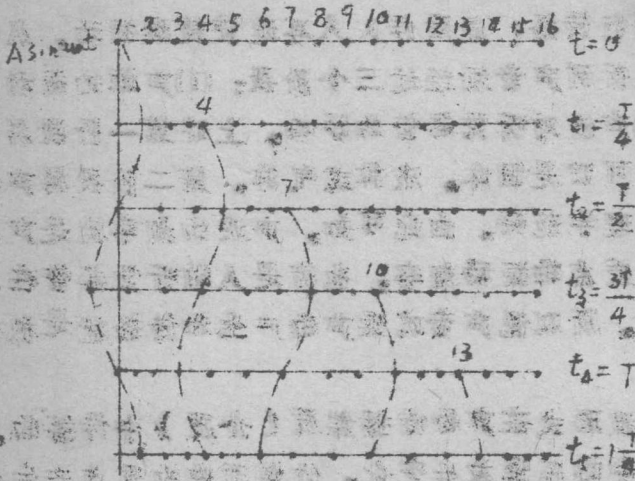 1 2 3 4 5 6 7 8 9 10 11 12 13 14 15 16
A sin ωt t=0
4 t₁=T/4
7 t₂=T/2
10 t₃=3T/4
13 t₄=T